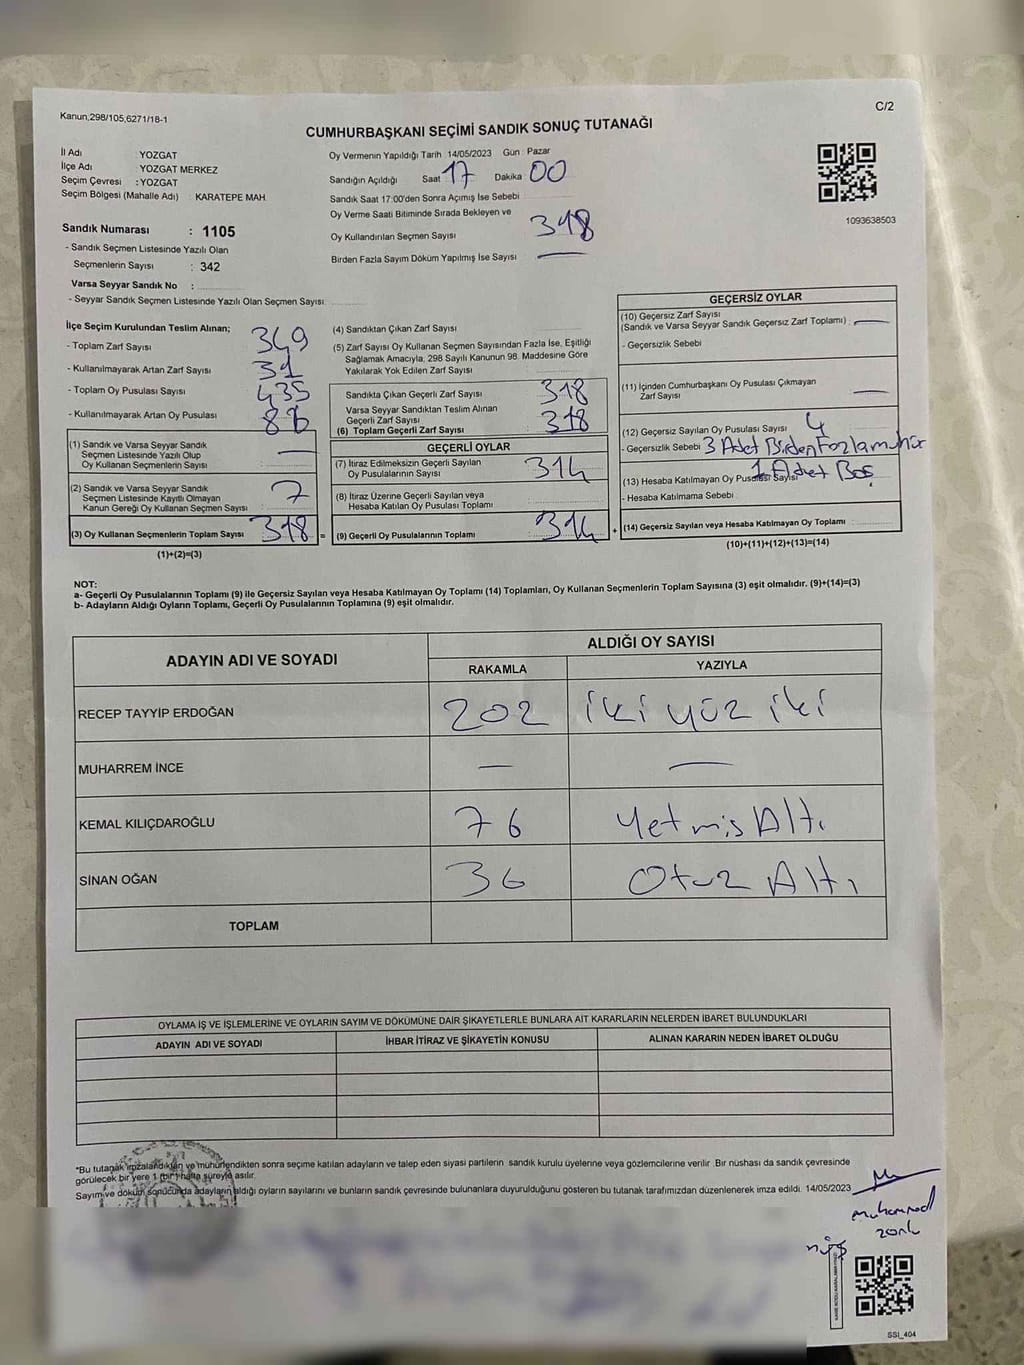 Kanun,298/105,6271/18-1
C/2
CUMHURBAŞKANI SEÇİMİ SANDIK SONUÇ TUTANAĞI
İl Adı : YOZGAT
İlçe Adı : YOZGAT MERKEZ
Seçim Çevresi : YOZGAT
Seçim Bölgesi (Mahalle Adı) : KARATEPE MAH.
Sandık Numarası : 1105
- Sandık Seçmen Listesinde Yazılı Olan
Seçmenlerin Sayısı : 342
Varsa Seyyar Sandık No :
- Seyyar Sandık Seçmen Listesinde Yazılı Olan Seçmen Sayısı:
Oy Vermenin Yapıldığı Tarih 14/05/2023 Gün : Pazar
Sandığın Açıldığı Saat 17 Dakika : 00
Sandık Saat 17:00'den Sonra Açımış İse Sebebi
Oy Verme Saati Bitiminde Sırada Bekleyen ve
Oy Kullandırılan Seçmen Sayısı 318
Birden Fazla Sayım Döküm Yapılmış İse Sayısı —
1093638503
İlçe Seçim Kurulundan Teslim Alınan;
- Toplam Zarf Sayısı 349
- Kullanılmayarak Artan Zarf Sayısı 31
- Toplam Oy Pusulası Sayısı 435
- Kullanılmayarak Artan Oy Pusulası
(1) Sandık ve Varsa Seyyar Sandık
Seçmen Listesinde Yazılı Olup
Oy Kullanan Seçmenlerin Sayısı —
(2) Sandık ve Varsa Seyyar Sandık
Seçmen Listesinde Kayıtlı Olmayan
Kanun Gereği Oy Kullanan Seçmen Sayısı 7
(3) Oy Kullanan Seçmenlerin Toplam Sayısı 318 =
(1)+(2)=(3)
(4) Sandıktan Çıkan Zarf Sayısı
(5) Zarf Sayısı Oy Kullanan Seçmen Sayısından Fazla İse, Eşitliği
Sağlamak Amacıyla, 298 Sayılı Kanunun 98. Maddesine Göre
Yakılarak Yok Edilen Zarf Sayısı
Sandıkta Çıkan Geçerli Zarf Sayısı 318
Varsa Seyyar Sandıktan Teslim Alınan
Geçerli Zarf Sayısı
(6) Toplam Geçerli Zarf Sayısı 318
GEÇERLİ OYLAR
(7) İtiraz Edilmeksizin Geçerli Sayılan
Oy Pusulalarının Sayısı 314
(8) İtiraz Üzerine Geçerli Sayılan veya
Hesaba Katılan Oy Pusulası Toplamı
(9) Geçerli Oy Pusulalarının Toplamı 314 +
GEÇERSİZ OYLAR
(10) Geçersiz Zarf Sayısı
(Sandık ve Varsa Seyyar Sandık Geçersiz Zarf Toplamı) : —
- Geçersizlik Sebebi
(11) İçinden Cumhurbaşkanı Oy Pusulası Çıkmayan
Zarf Sayısı —
(12) Geçersiz Sayılan Oy Pusulası Sayısı 4
- Geçersizlik Sebebi 3 Adet Birden Fazla mühür
1 Adet Boş
(13) Hesaba Katılmayan Oy Pusulası Sayısı
- Hesaba Katılmama Sebebi
(14) Geçersiz Sayılan veya Hesaba Katılmayan Oy Toplamı
(10)+(11)+(12)+(13)=(14)
NOT:
a- Geçerli Oy Pusulalarının Toplamı (9) ile Geçersiz Sayılan veya Hesaba Katılmayan Oy Toplamı (14) Toplamları, Oy Kullanan Seçmenlerin Toplam Sayısına (3) eşit olmalıdır. (9)+(14)=(3)
b- Adayların Aldığı Oyların Toplamı, Geçerli Oy Pusulalarının Toplamına (9) eşit olmalıdır.
ADAYIN ADI VE SOYADI ALDIĞI OY SAYISI
RAKAMLA YAZIYLA
RECEP TAYYİP ERDOĞAN 202 iki yüz iki
MUHARREM İNCE — —
KEMAL KILIÇDAROĞLU 76 Yetmiş Altı
SİNAN OĞAN 36 Otuz Altı
TOPLAM
OYLAMA İŞ VE İŞLEMLERİNE VE OYLARIN SAYIM VE DÖKÜMÜNE DAİR ŞİKAYETLERLE BUNLARA AİT KARARLARIN NELERDEN İBARET BULUNDUKLARI
ADAYIN ADI VE SOYADI İHBAR İTİRAZ VE ŞİKAYETİN KONUSU ALINAN KARARIN NEDEN İBARET OLDUĞU
*Bu tutanak imzalandıktan ve mühürlendikten sonra seçime katılan adayların ve talep eden siyasi partilerin sandık kurulu üyelerine veya gözlemcilerine verilir. Bir nüshası da sandık çevresinde
görülecek bir yere 1 (bir) hafta süreyle asılır.
Sayım ve döküm sonucunda adayların aldığı oyların sayılarını ve bunların sandık çevresinde bulunanlara duyurulduğunu gösteren bu tutanak tarafımızdan düzenlenerek imza edildi. 14/05/2023
SSI_404